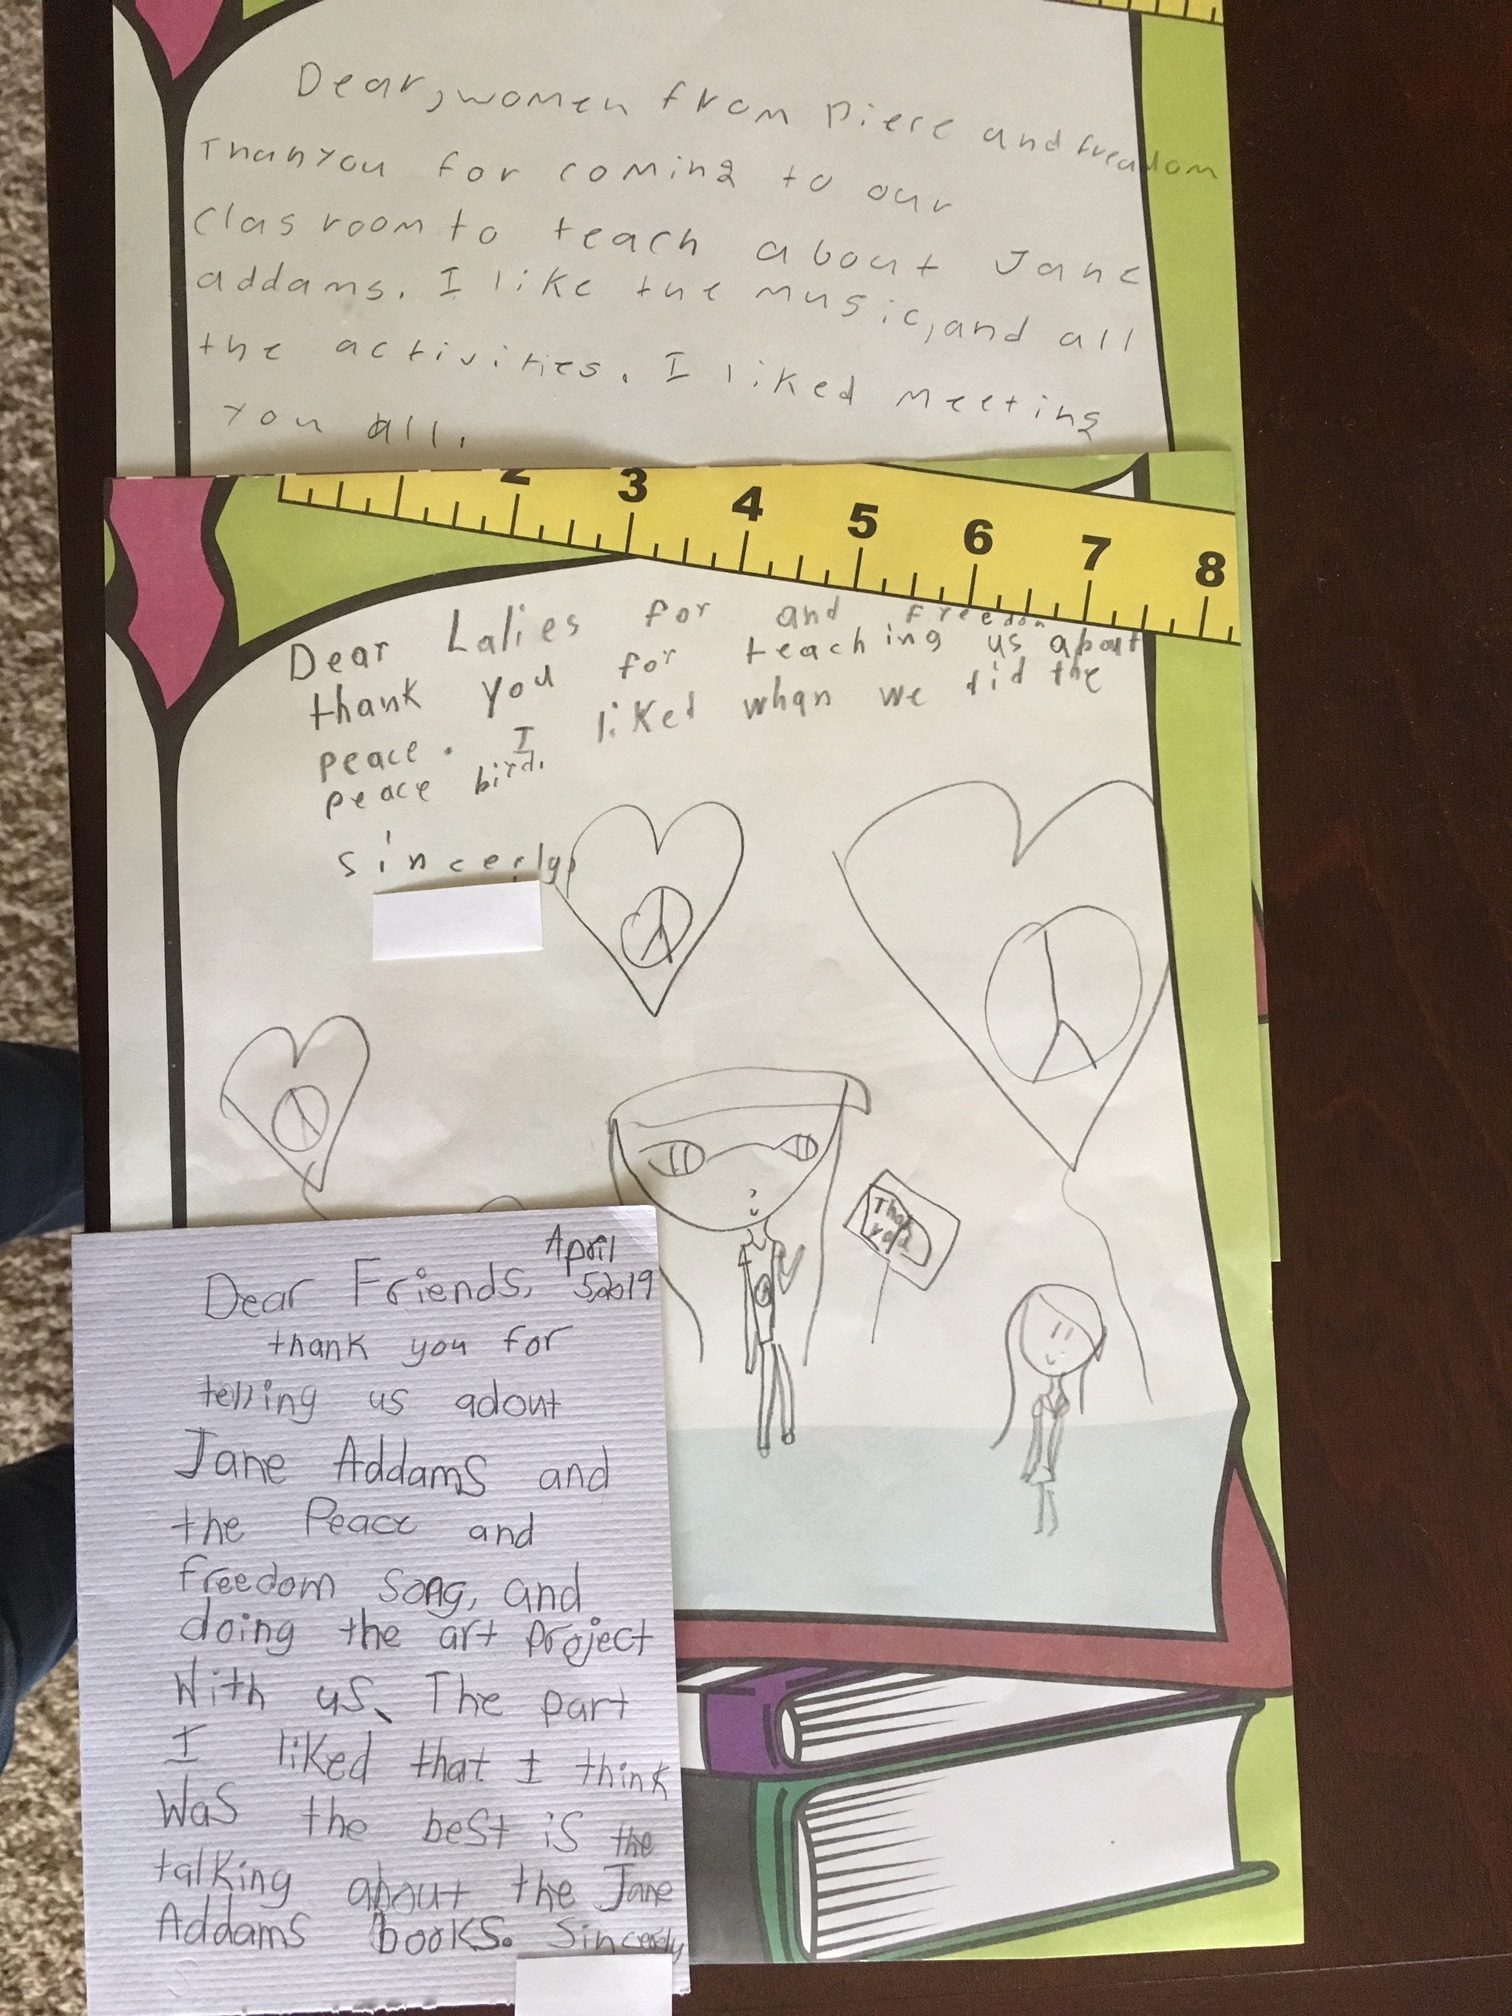 Dear, women from Piece and freadom
Thanyou for coming to our
Clasroom to teach about Jane
addams. I like the music, and all
the activities. I liked meeting
you all.
2 3 4 5 6 7 8
Dear Lalies for and freedom
thank you for teaching us about
peace. I liked whan we did the
peace bird.
sincerly,
Thank
you
April
Dear Friends, 5,2019
thank you for
telling us adout
Jane Addams and
the Peace and
freedom song, and
doing the art project
With us. The part
I liked that I think
was the best is the
talking about the Jane
Addams books. Sincerely